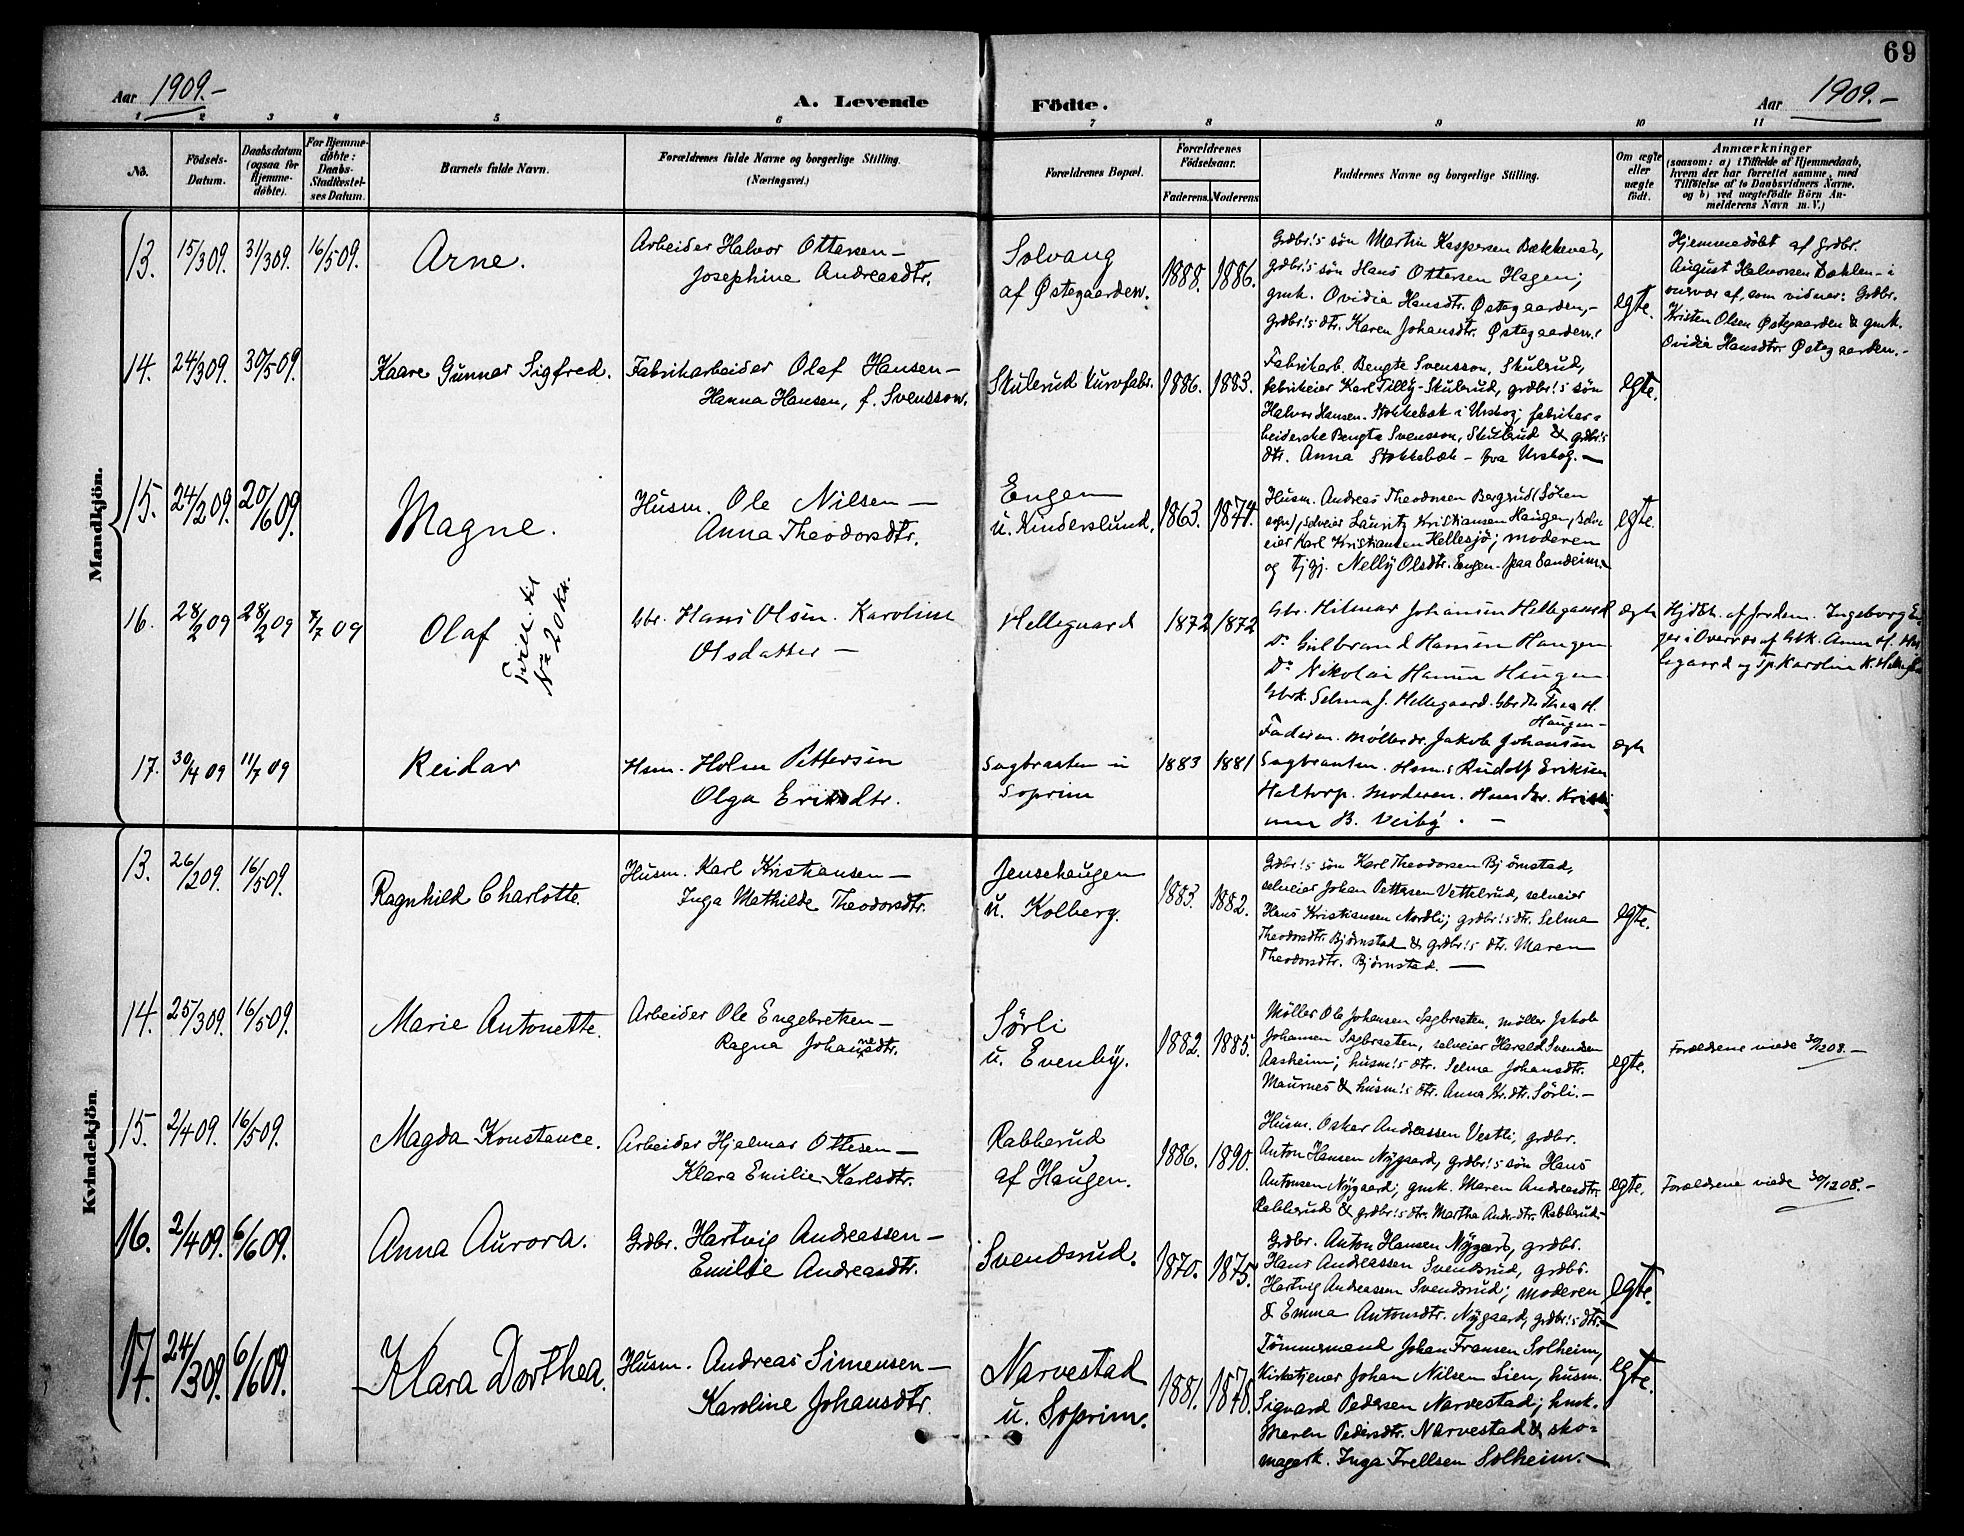 69
Aar 1909.-
A. Levende
Födte.
Aar 1909.-
1 2 3 4 5 6 7 8 9 10 11
No.
Födsels-
Datum.
Daabsdatum
(ogsaa for
Hjemme-
døbte).
For Hjemme-
døbte:
Daabs-
Stadfæstel-
ses Datum.
Barnets fulde Navn.
Forældrenes fulde Navne og borgerlige Stilling.
(Næringsvei.)
Forældrenes Bopæl.
Forældrenes
Födselsaar.
Faderens.
Moderens.
Faddernes Navne og borgerlige Stilling.
Om ægte
eller
uægte
födt.
Anmærkninger
(saasom: a) i Tilfælde af Hjemmedaab,
hvem der har forrettet samme, med
Tilföielse af to Daabsvidners Navne,
og b) ved uægtefödte Börn An-
melderens Navn m. V.)
Mandkjön.
13. 15/3 09. 31/3 09. 16/5 09. Arne.
Arbeider Halvor Ottersen –
Josephine Andreasdtr.
Solvang
af Østegaarden.
1888. 1886.
Grdbr!s søn Martin Kaspersen Bækkevar,
grdbr!s søn Hans Ottersen Hagen;
gmk. Ovidia Hansdtr. Østegaarden,-
Grdbr!s dtr. Karen Johansdtr. Østegaarden.
egte.
Hjemmedøbt af Grdbr.
August Halvorsen Dahlen – i
nærvær af, som vidner: Grdbr.
Kristen Olsen Østegaarden & gmk.
Ovidia Hansdtr. Østegaarden.-
14. 24/3 09. 30/5 09. Kaare Gunnar Sigfred.
Fabrikarbeider Olaf Hansen –
Hanna Hansen, f. Svensson.
Skulerud Kurvfabr.
1886. 1883.
Fabrikarb. Bengte Svensson, Skulrud,
fabrikeier Karl Tilly-Skulrud, grdbr!s søn
Halvor Hansen Stokkebæk i Urskog; fabrikar-
beiderske Bengta Svensson, Skulrud & grdbr!s
dtr. Anna Stokkebæk – fra Urskog. –
egte.
15. 24/2 09. 20/6 09. Magne.
Husm. Ole Nilsen –
Anna Theodorsdtr.
Engen
u. Kinderslund.
1863. 1874.
Husm. Andreas Theodorsen Bergrud (Søten
sogn), selveier Lauritz Kristiansen Haugen, selv-
eier Karl Kristiansen Hellesjø; moderen
og tjgj. Nelly Olsdtr. Engen – paa Sandeim.
egte.
16. 28/2 09 28/2 09 4/7 09 Olaf
Tvill. til
No 20 Kv.
Gbr. Hans Olsen. Karoline
Olsdatter –
Hellegaard
1872 1872
Gbr. Hilmar Johansen Hellegaard
Do Gulbrand Hansen Haugen
Do Nikolai Hansen Haugen
Gbrk. Selma J. Hellegaard. Gbr dtr Thea H.
Haugen –
ægte
Hjdbt. af Jordem. Ingeborg
i Overvær af Gbk. Anna H.
og Tp Karoline K.
17. 30/4 09 11/7 09 Reidar
Hsm. Holm Pettersen
Olga Eriksdtr.
Sagbraaten u
Soprim
1883 1881
Faderen. Møllerdr. Jakob Johansen
Sagbraaten. Hsms Rudolf Eriksen
Haltorp. Moderen. Hsmdtr. Kristi
ane B. Veiby. –
ægte
Kvindekjön.
13. 26/2 09. 16/5 09. Ragnhild Charlotte.
Husm. Karl Kristiansen –
Inga Mathilde Theodorsdtr.
Jensehaugen
u. Kolberg.
1883. 1882.
Grdbr!s søn Karl Theodorsen Bjørnstad,
selveier Johan Pettersen Vettelrud, selveier
Hans Kristiansen Nordli; grdbr!s dtr. Selma
Theodorsdtr. Bjørnstad & grdbr!s dtr. Maren
Theodorsdtr. Bjørnstad. –
egte.
14. 25/3 09. 16/5 09. Marie Antonette.
Arbeider Ole Engebretsen –
Ragna Johannesdtr.
Sørli
u. Evenby.
1882. 1885.
Møller Ole Johansen Sagbraaten, møller Jakob
Johansen Sagbraaten, selveier Harald Svendsen
Aasheim; husm!s dtr. Selma Johansdtr.
Maurnes & husm!s dtr. Anna Kr.dtr. Sørli. –
egte.
Forældrene viede 30/12 08. –
15. 2/4 09. 16/5 09. Magda Konstance.
Arbeider Hjalmar Ottesen –
Klara Emilie Karlsdtr.
Rabberud
af Haugen.
1886. 1890.
Husm. Oskar Andreassen Vestli, grdbr.
Anton Hansen Nygaard, grdbr!s søn Hans
Antonsen Nygaard; gmk. Maren Andreasdtr.
Rabberud & grdbr!s dtr. Martha Andr.dtr. Rabberud.-
egte.
Forældrene viede 30/12 08. –
16. 2/4 09. 6/6 09. Anna Aurora.
Grdbr. Hartvig Andreassen –
Emilie Andreasdtr.
Svendsrud.
1870. 1875.
Grdbr. Anton Hansen Nygard, grdbr.
Hans Andreassen Svendsrud, grdbr.
Hartvig Andreassen Svendsrud; moderen
& Emma Antonsdtr. Nygaard, grdbr!s dtr. –
egte.
17. 24/3 09. 6/6 09. Klara Dorthea.
Husm. Andreas Simensen –
Karoline Johansdtr.
Narvestad
u. Soprim.
1881. 1878.
Tømmermand Johan Fransen Solheim,
Kirketjener Johan Nilsen Lien, husm.
Sigvard Pedersen Narvestad; hmk.
Maren Pedersdtr. Narvestad & sko-
magerk. Inga Trellsen Solheim. –
egte.